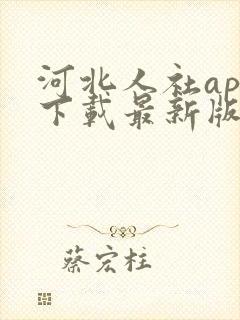 河北人社ap
下载最新版
蔡宏柱